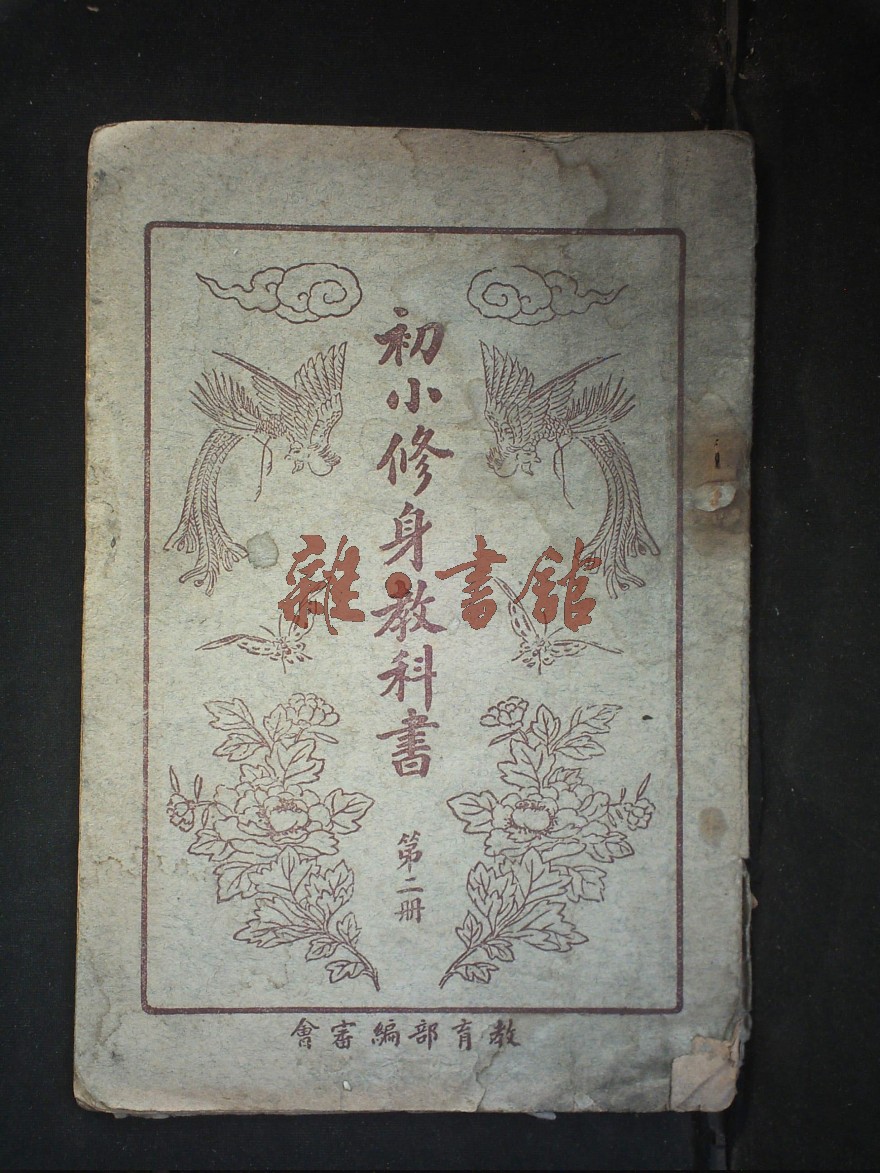 初小修身教科書
第二册
雜·書館
教育部編審會